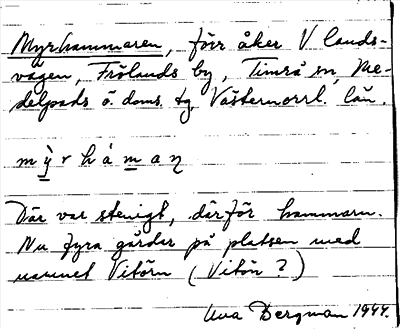 Myrhammaren, förr åker V. lands-
vägen, Frölands by, Timrå sn, Me-
delpads ö. doms. tg. Västernorrl. län.
m ỳ r h á m a ŋ
Där var stenigt, därför hammarn.
Nu fyra gårdar på platsen med
namnet Vitörn (Vitön ?)
Una Bergman 1944.